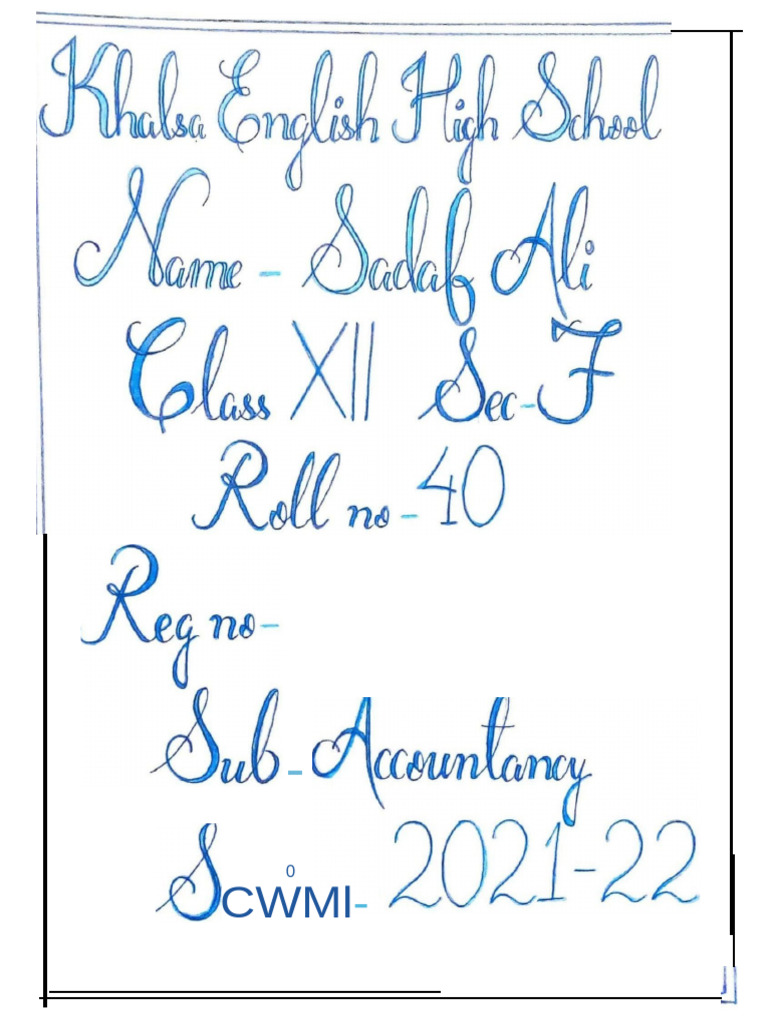 Khalsa English High School
Name - Sadaf Ali
Class XII Sec-F
Roll no - 40
Reg no-
Sub - Accountancy
0
SCWMI- 2021-22